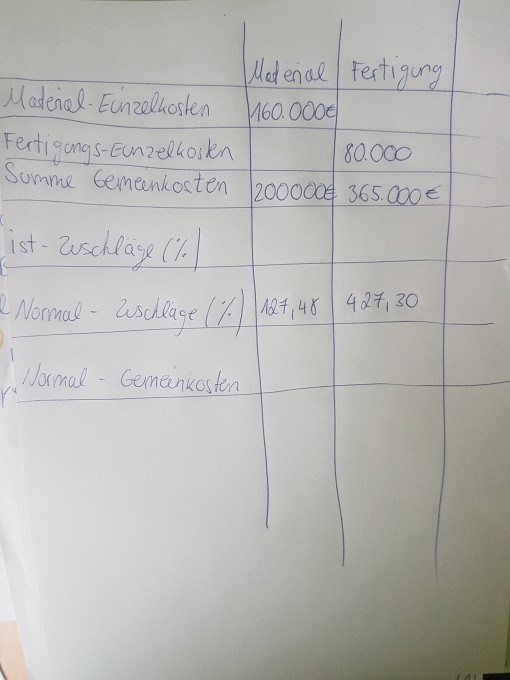 Material Fertigung
Material-Einzelkosten 160.000€
Fertigungs-Einzelkosten 80.000
Summe Gemeinkosten 200000€ 365.000€
ist-Zuschläge (%)
Normal - Zuschläge (%) 127,48 427,30
Normal - Gemeinkosten